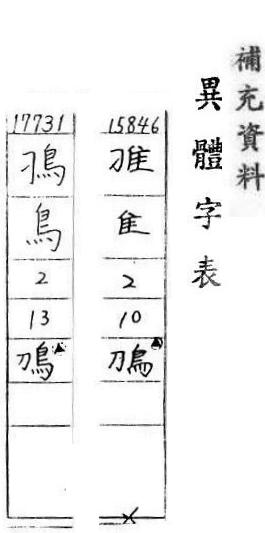 補充資料
異體字表
15846
隹
2
10
鳭
17731
鳥
2
13
鳭